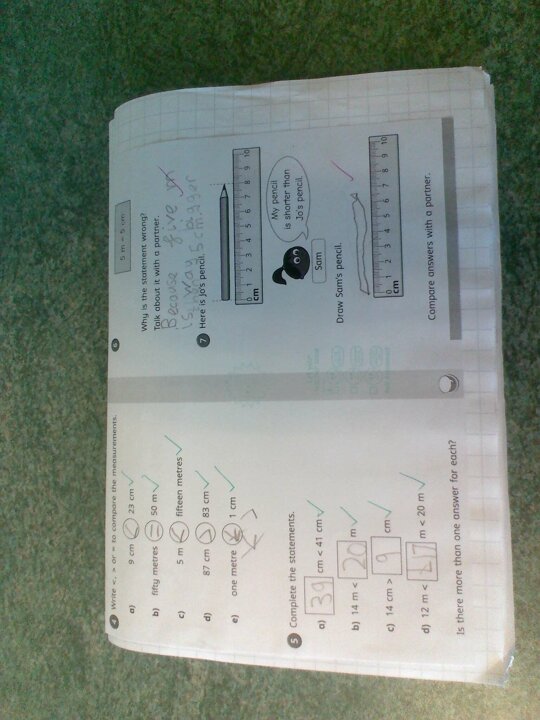 4 Write <, > or = to compare the measurements.
a) 9 cm < 23 cm
b) fifty metres = 50 m
c) 5 m < fifteen metres
d) 87 cm > 83 cm
e) one metre 1 cm
5 Complete the statements.
a) 39 cm < 41 cm
b) 14 m < 20 m
c) 14 cm > 9 cm
d) 12 m < 17 m < 20 m
Is there more than one answer for each?
6 5 m = 5 cm
Why is the statement wrong?
Talk about it with a partner.
Because five m
is way bigger
5 cm.
7 Here is Jo's pencil.
0 1 2 3 4 5 6 7 8 9 10
cm
My pencil
is shorter than
Jo's pencil.
Sam
Draw Sam's pencil.
0 1 2 3 4 5 6 7 8 9 10
cm
Compare answers with a partner.